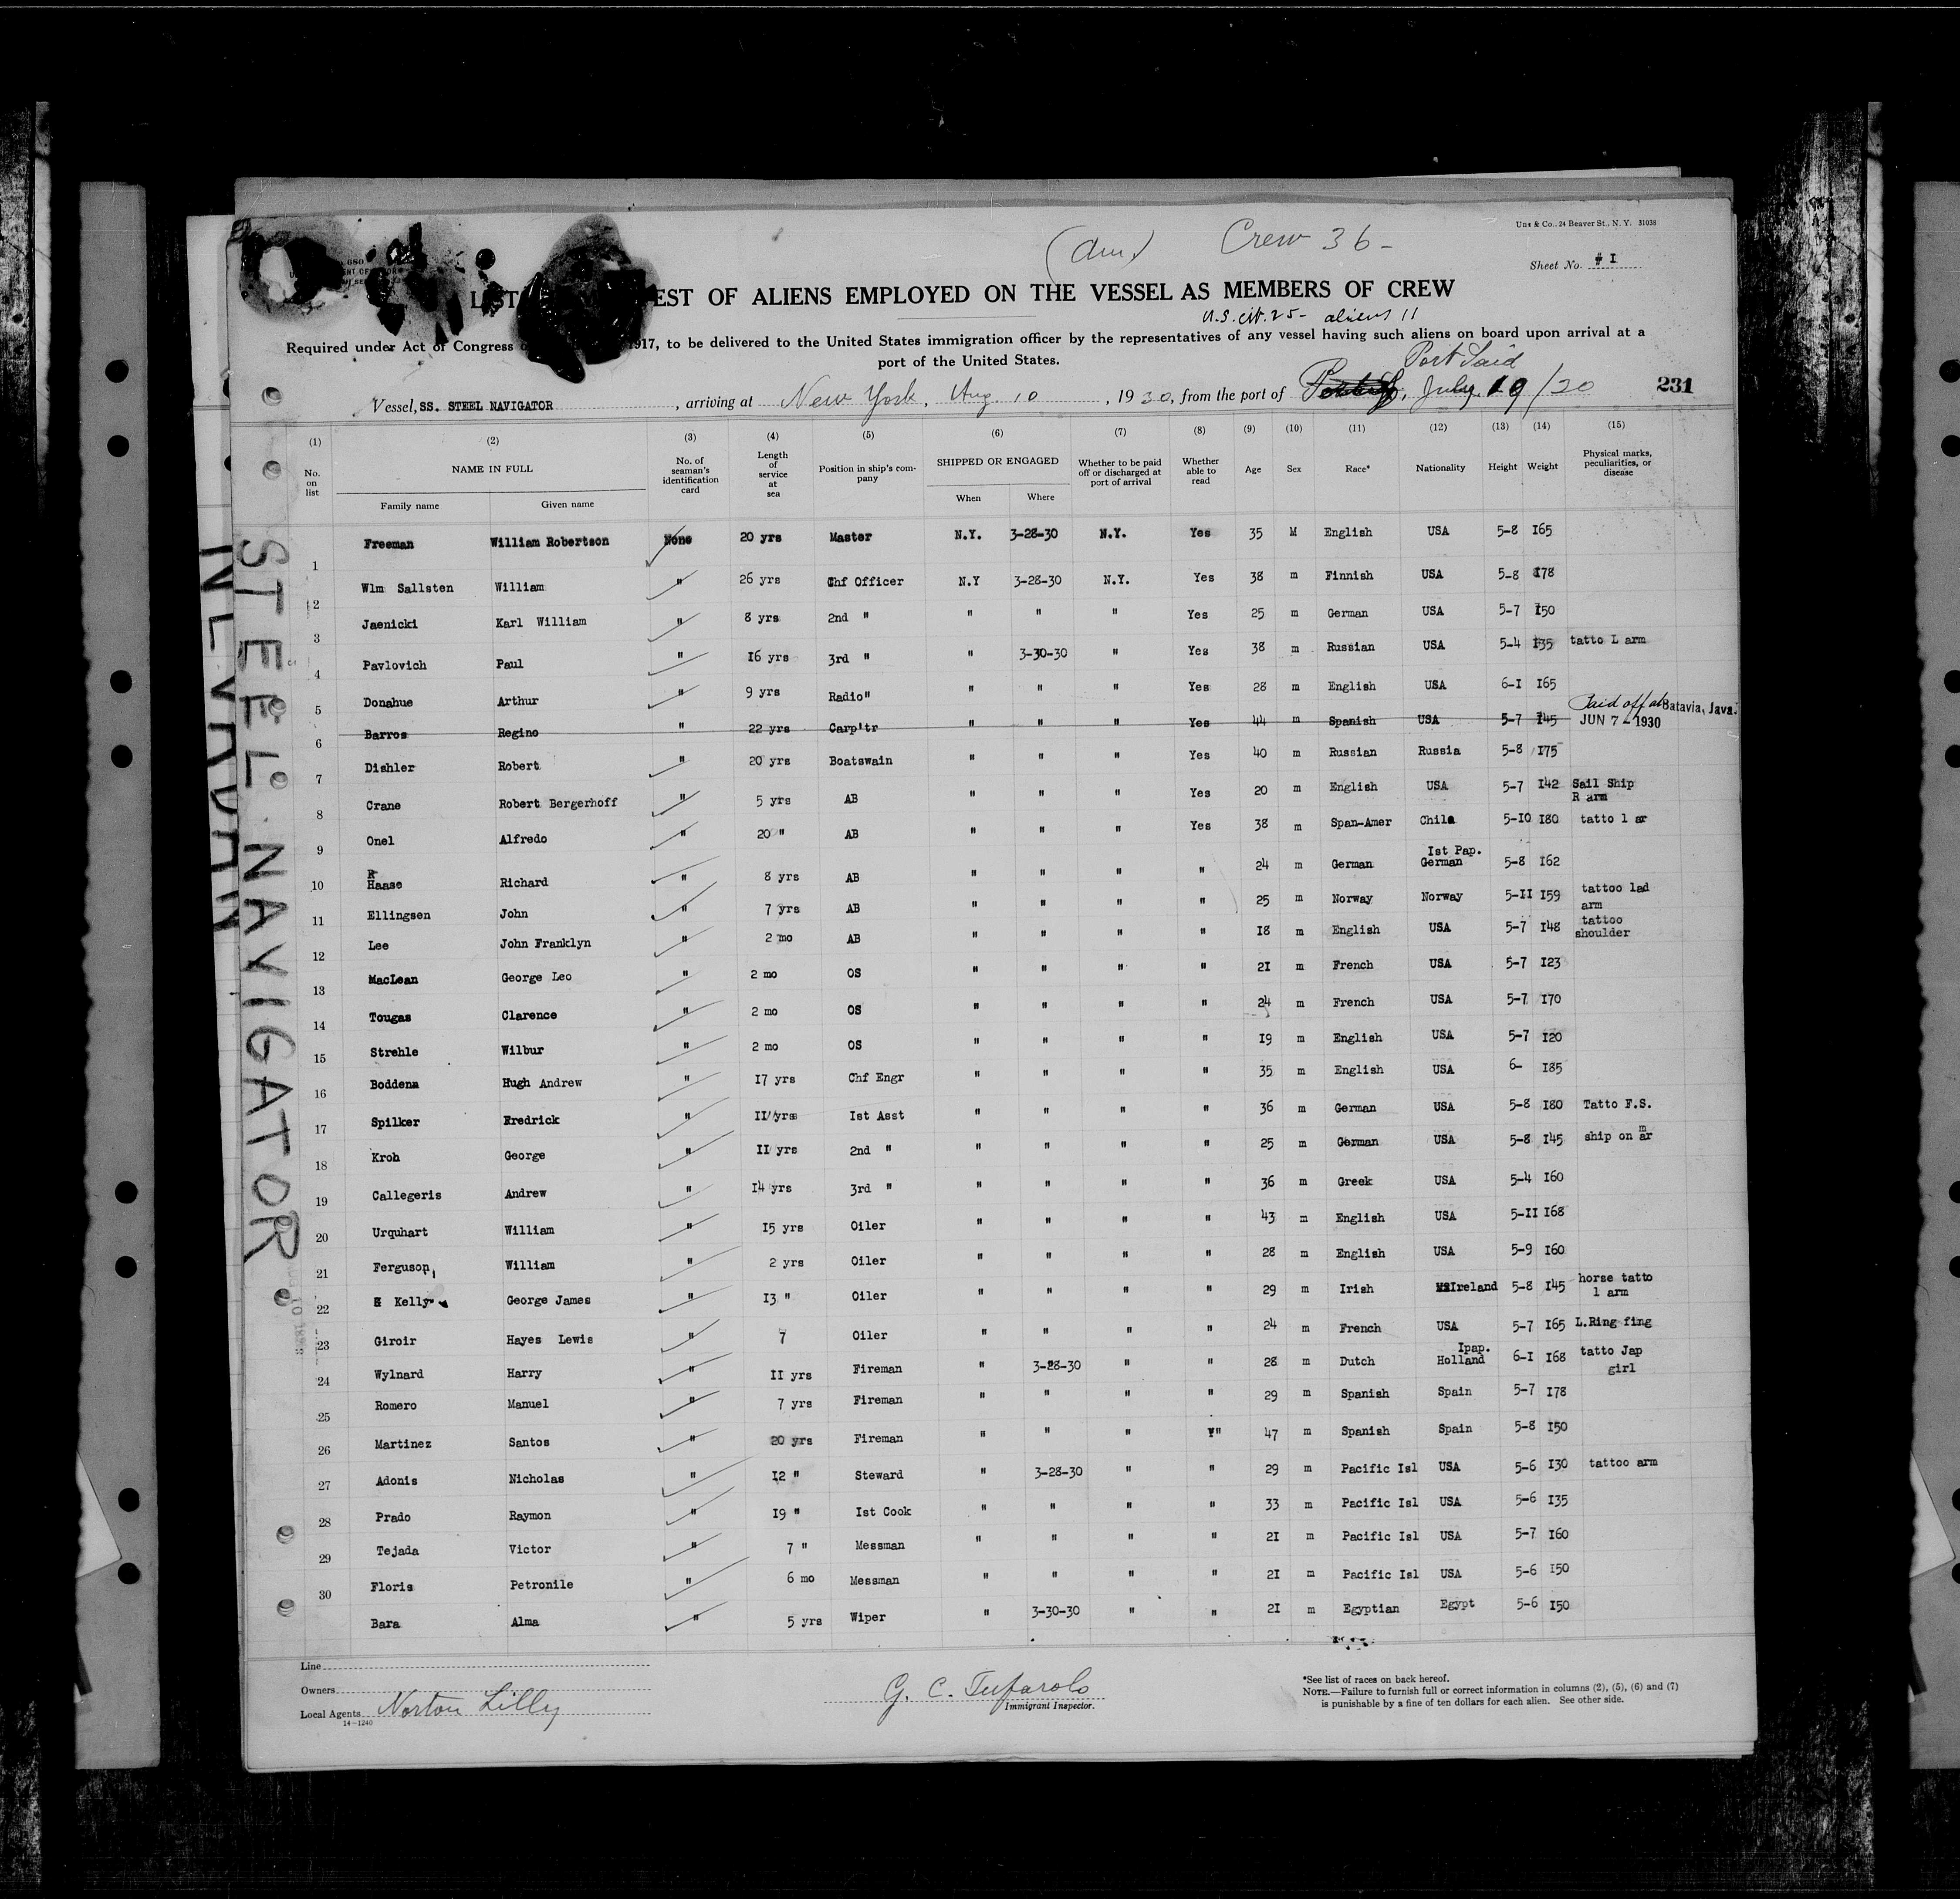 (Am) Crew 36-
Uns & Co., 24 Beaver St., N. Y. 31038
Sheet No. #I
LIST EST OF ALIENS EMPLOYED ON THE VESSEL AS MEMBERS OF CREW
U.S. cit. 25- aliens 11
Required under Act of Congress 1917, to be delivered to the United States immigration officer by the representatives of any vessel having such aliens on board upon arrival at a
port of the United States.
Port Said
Vessel, SS. STEEL NAVIGATOR, arriving at New York, Aug. 10, 1930, from the port of July 19/30 231
(1) (2) (3) (4) (5) (6) (7) (8) (9) (10) (11) (12) (13) (14) (15)
No. on list NAME IN FULL No. of seaman's identification card Length of service at sea Position in ship's company SHIPPED OR ENGAGED Whether to be paid off or discharged at port of arrival Whether able to read Age Sex Race* Nationality Height Weight Physical marks, peculiarities, or disease
Family name Given name When Where
1 Freeman William Robertson None 20 yrs Master N.Y. 3-28-30 N.Y. Yes 35 M English USA 5-8 I65
2 Wlm Sallsten William " 26 yrs Chf Officer N.Y 3-28-30 N.Y. Yes 38 m Finnish USA 5-8 I78
3 Jaenicki Karl William " 8 yrs 2nd " " " " Yes 25 m German USA 5-7 I50
4 Pavlovich Paul " I6 yrs 3rd " " 3-30-30 " Yes 38 m Russian USA 5-4 I35 tatto L arm
5 Donahue Arthur " 9 yrs Radio" " " " Yes 28 m English USA 6-I I65
6 Barros Regino " 22 yrs Carp'tr " " " Yes 44 m Spanish USA 5-7 I45 Paid off at Batavia, Java. JUN 7 - 1930
7 Dishler Robert " 20 yrs Boatswain " " " Yes 40 m Russian Russia 5-8 I75
8 Crane Robert Bergerhoff " 5 yrs AB " " " Yes 20 m English USA 5-7 I42 Sail Ship R arm
9 Onel Alfredo " 20 " AB " " " Yes 38 m Span-Amer Chile 5-IO I80 tatto l ar
10 R Haase Richard " 8 yrs AB " " " " 24 m German Ist Pap. German 5-8 I62
11 Ellingsen John " 7 yrs AB " " " " 25 m Norway Norway 5-II I59 tattoo lad arm
12 Lee John Franklyn " 2 mo AB " " " " I8 m English USA 5-7 I48 tattoo shoulder
13 MacLean George Leo " 2 mo OS " " " " 2I m French USA 5-7 I23
14 Tougas Clarence " 2 mo OS " " " " 24 m French USA 5-7 I70
15 Strehle Wilbur " 2 mo OS " " " " I9 m English USA 5-7 I20
16 Boddena Hugh Andrew " I7 yrs Chf Engr " " " " 35 m English USA 6- I85
17 Spilker Fredrick " II yrs Ist Asst " " " " 36 m German USA 5-8 I80 Tatto F.S.
18 Kroh George " II yrs 2nd " " " " " 25 m German USA 5-8 I45 ship on arm
19 Callegeris Andrew " I4 yrs 3rd " " " " " 36 m Greek USA 5-4 I60
20 Urquhart William " I5 yrs Oiler " " " " 43 m English USA 5-II I68
21 Ferguson William " 2 yrs Oiler " " " " 28 m English USA 5-9 I60
22 Kelly George James " I3 " Oiler " " " " 29 m Irish Ireland 5-8 I45 horse tatto l arm
23 Giroir Hayes Lewis " 7 Oiler " " " " 24 m French USA 5-7 I65 L.Ring fing
24 Wylnard Harry " II yrs Fireman " 3-28-30 " " 28 m Dutch Ipap. Holland 6-I I68 tatto Jap girl
25 Romero Manuel " 7 yrs Fireman " " " " 29 m Spanish Spain 5-7 I78
26 Martinez Santos " 20 yrs Fireman " " " " 47 m Spanish Spain 5-8 I50
27 Adonis Nicholas " I2 " Steward " 3-28-30 " " 29 m Pacific Isl USA 5-6 I30 tattoo arm
28 Prado Raymon " I9 " Ist Cook " " " " 33 m Pacific Isl USA 5-6 I35
29 Tejada Victor " 7 " Messman " " " " 2I m Pacific Isl USA 5-7 I60
30 Floris Petronile " 6 mo Messman " " " " 2I m Pacific Isl USA 5-6 I50
Bara Alma " 5 yrs Wiper " 3-30-30 " " 2I m Egyptian Egypt 5-6 I50
STEEL NAVIGATOR
Line
Owners
Local Agents Norton Lilly
14-1240
G. C. Tufarolo
Immigrant Inspector.
*See list of races on back hereof.
NOTE.—Failure to furnish full or correct information in columns (2), (5), (6) and (7)
is punishable by a fine of ten dollars for each alien. See other side.